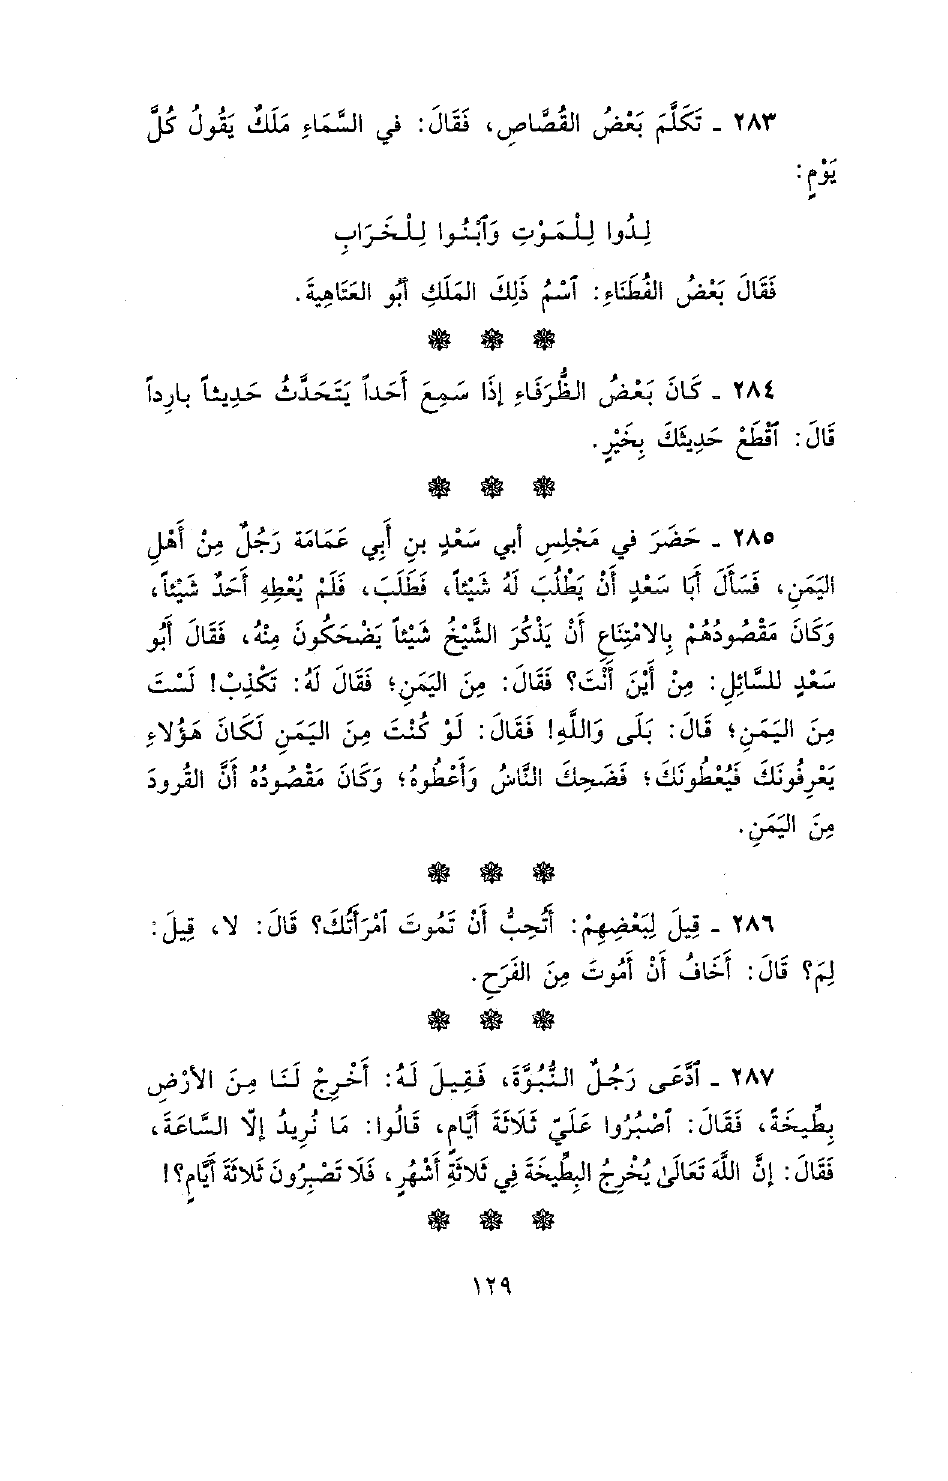 ٢٨٣ ـ تَكَلَّمَ بَعْضُ القُصَّاصِ، فَقَالَ: في السَّمَاءِ مَلَكٌ يَقُولُ كُلَّ
يَوْمٍ:
لِدُوا لِلْمَوْتِ وَٱبْنُوا لِلْخَرَابِ
فَقَالَ بَعْضُ الفُطَنَاءِ: ٱسْمُ ذَلِكَ المَلَكِ أَبُو العَتَاهِيةَ.
٢٨٤ ـ كَانَ بَعْضُ الظُّرَفَاءِ إِذَا سَمِعَ أَحَداً يَتَحَدَّثُ حَدِيثاً بارِداً
قَالَ: ٱقْطَعْ حَدِيثَكَ بِخَيْرٍ.
٢٨٥ ـ حَضَرَ في مَجْلِسِ أبي سَعْدٍ بنِ أَبِي عَمَامَة رَجُلٌ مِنْ أَهْلِ
اليَمَنِ، فَسَأَلَ أَبَا سَعْدٍ أَنْ يَطْلُبَ لَهُ شَيْئاً، فَطَلَبَ، فَلَمْ يُعْطِهِ أَحَدٌ شَيْئاً،
وَكَانَ مَقْصُودُهُمْ بِالامْتِنَاعِ أَنْ يَذْكُرَ الشَّيْخُ شَيْئاً يَضْحَكُونَ مِنْهُ، فَقَالَ أَبُو
سَعْدٍ للسَّائِلِ: مِنْ أَيْنَ أَنْتَ؟ فَقَالَ: مِنَ اليَمَنِ؛ فَقَالَ لَهُ: تَكْذِبْ! لَسْتَ
مِنَ اليَمَنِ؛ قَالَ: بَلَى وَاللَّهِ! فَقَالَ: لَوْ كُنْتَ مِنَ اليَمَنِ لَكَانَ هَؤُلاءِ
يَعْرِفُونَكَ فَيُعْطُونَكَ؛ فَضَحِكَ النَّاسُ وَأَعْطُوهُ؛ وَكَانَ مَقْصُودُهُ أَنَّ القُرودَ
مِنَ اليَمَنِ.
٢٨٦ ـ قِيلَ لِبَعْضِهِمْ: أَتُحِبُّ أَنْ تَمُوتَ ٱمْرَأَتُكَ؟ قَالَ: لا، قِيلَ:
لِمَ؟ قَالَ: أَخَافُ أَنْ أَمُوتَ مِنَ الفَرَحِ.
٢٨٧ ـ ٱدَّعَى رَجُلٌ النُّبُوَّةَ، فَقِيلَ لَهُ: أَخْرِجْ لَنَا مِنَ الأَرْضِ
بِطِّيخَةً، فَقَالَ: ٱصْبُرُوا عَلَيّ ثَلَاثَةَ أَيَّامٍ، قَالُوا: مَا نُرِيدُ إِلّا السَّاعَةَ،
فَقَالَ: إِنَّ اللَّهَ تَعَالَىٰ يُخْرِجُ البِطِّيخَةَ فِي ثَلاثَةِ أَشْهُرٍ، فَلَا تَصْبِرُونَ ثَلاثَةَ أَيَّامٍ؟!
١٢٩